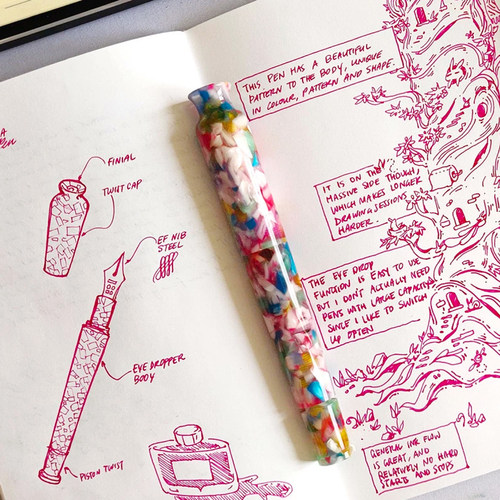 FINIAL
TWIST CAP
EF NIB
STEEL
EYE DROPPER
BODY
PISTON TWIST
THIS PEN HAS A BEAUTIFUL
PATTERN TO THE BODY, UNIQUE
IN COLOUR, PATTERN AND SHAPE.
IT IS ON THE
MASSIVE SIDE THOUGH,
WHICH MAKES LONGER
DRAWING SESSIONS
HARDER.
THE EYE DROP
FUNCTION IS EASY TO USE
BUT I DON'T ACTUALLY NEED
PENS WITH LARGE CAPACITY
SINCE I LIKE TO SWITCH
UP OFTEN
GENERAL INK FLOW
IS GREAT, AND
RELATIVELY NO HARD
STARTS AND STOPS